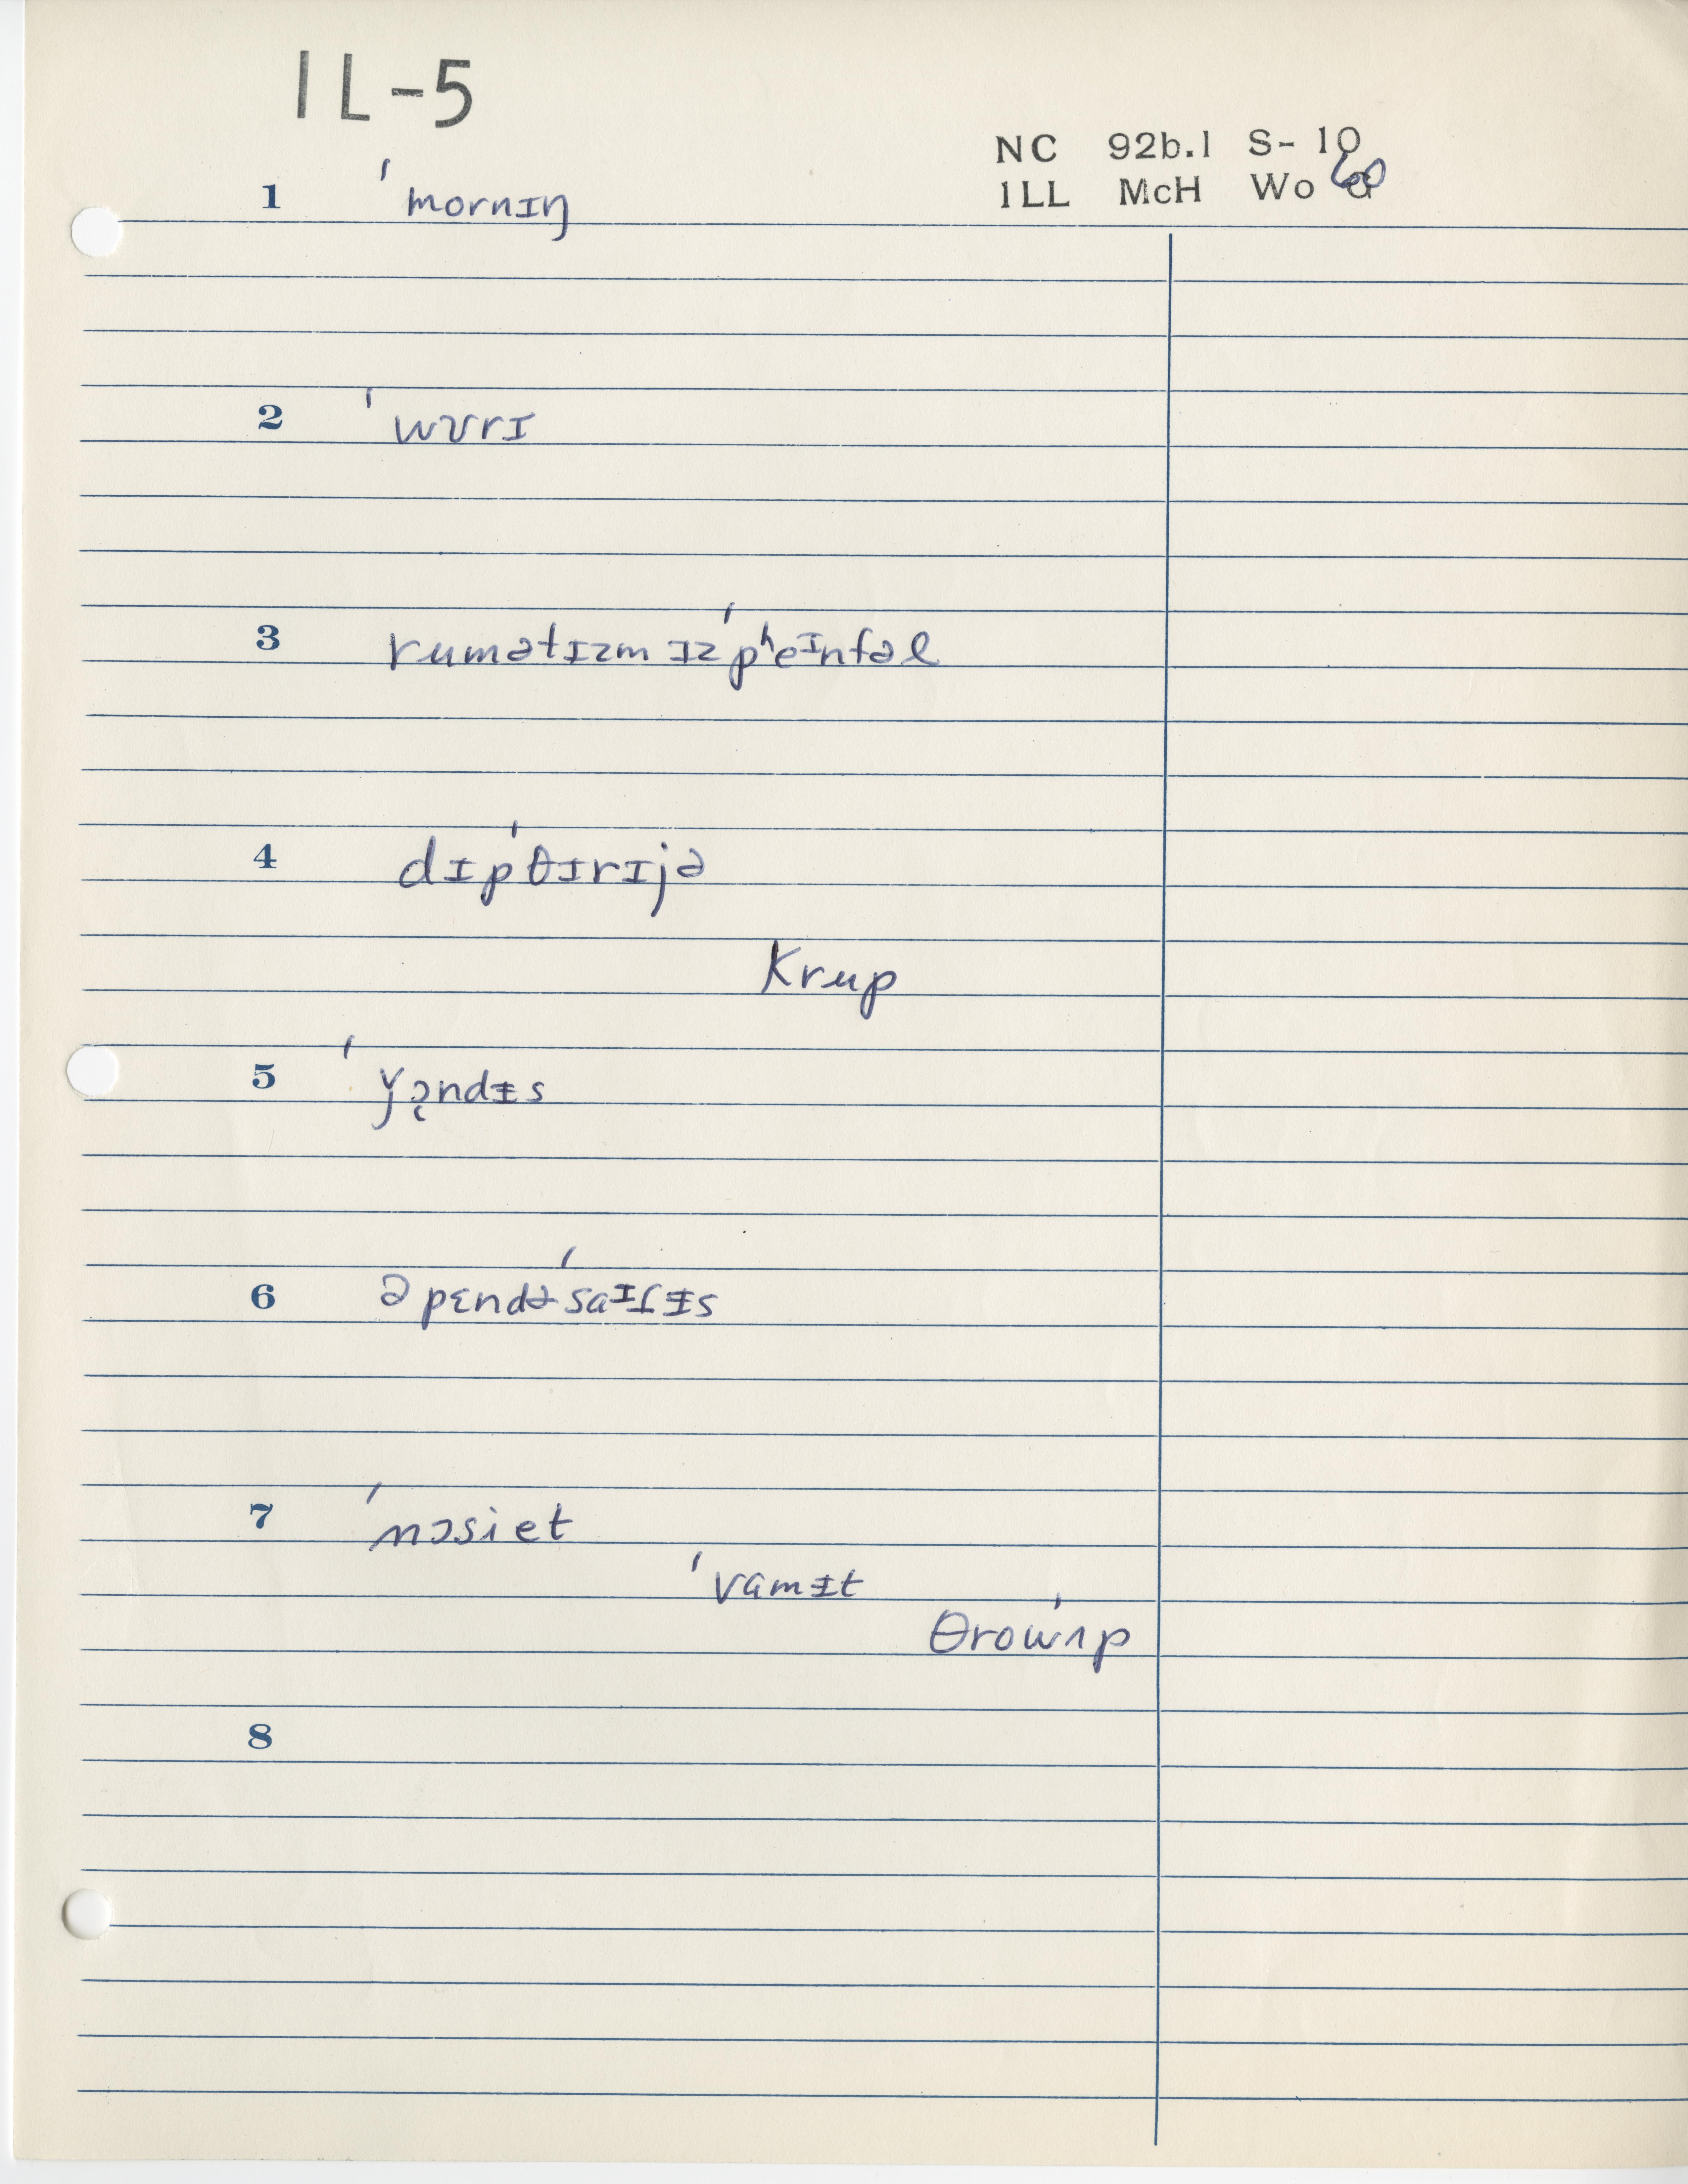 IL-5
NC 92b.1 S-10
ILL McH Wo
1 ˈmornɪŋ
2 ˈwʊrɪ
3 rumətɪzm ɪz ˈpʰeᶦnfəl
4 dɪpˈθɪrɪjə
krup
5 ˈǰɔ̨ndɨs
6 əpɛndəˈsaᶦɾɨs
7 ˈnɔsiet
ˈvamɨt
θrowˈʌp
8